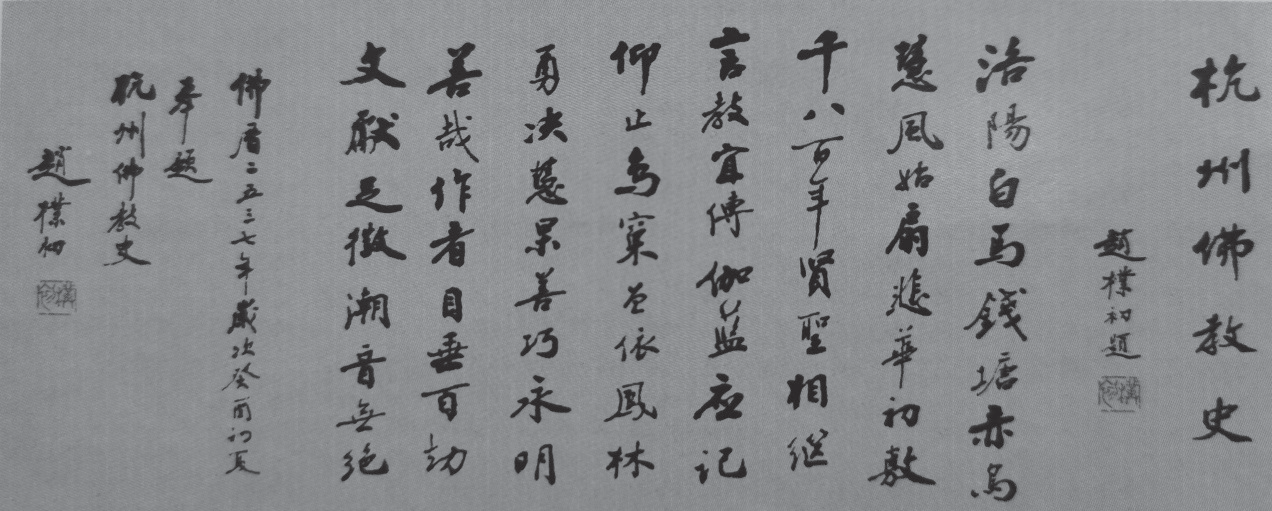 杭州佛教史
趙樸初題
洛陽白馬錢塘赤烏
慧風始扇悲華初敷
千八百年賢聖相繼
言教宜傳伽藍应記
仰止鳥窠曾依鳳林
勇决慧杲善巧永明
善哉作者目垂百劫
文獻足徵潮音無絶
佛曆二五三七年歲次癸酉初夏
奉題
杭州佛教史
趙樸初